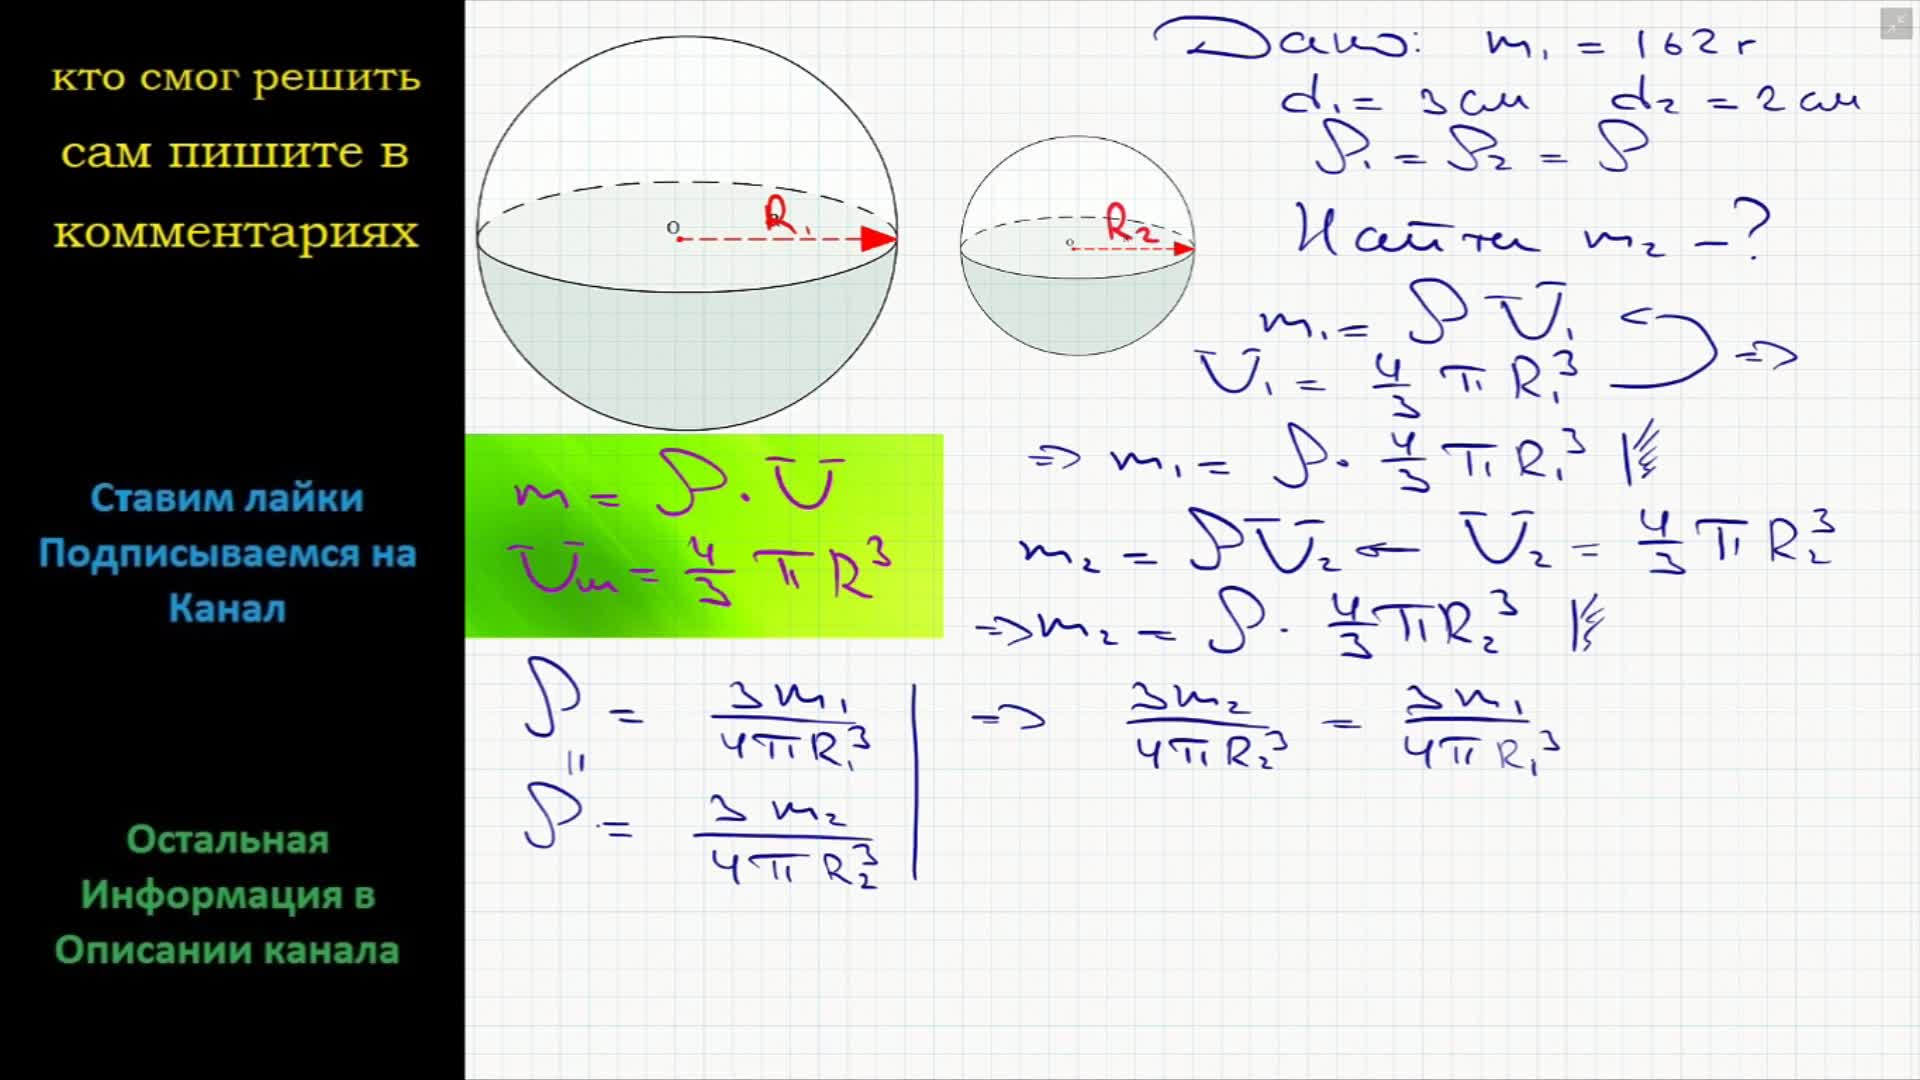 кто смог решить
сам пишите в
комментариях
Ставим лайки
Подписываемся на
Канал
Остальная
Информация в
Описании канала
O R₁
o R₂
Дано: m₁ = 162 г
d₁ = 3 см d₂ = 2 см
ρ₁ = ρ₂ = ρ
Найти m₂ - ?
m₁ = ρ V₁
V₁ = 4/3 π R₁³ =>
=> m₁ = ρ · 4/3 π R₁³
m₂ = ρ V₂ ← V₂ = 4/3 π R₂³
=> m₂ = ρ · 4/3 π R₂³
m = ρ · V
Vш = 4/3 π R³
ρ = 3m₁ / 4πR₁³ => 3m₂ / 4πR₂³ = 3m₁ / 4πR₁³
॥
ρ = 3m₂ / 4πR₂³